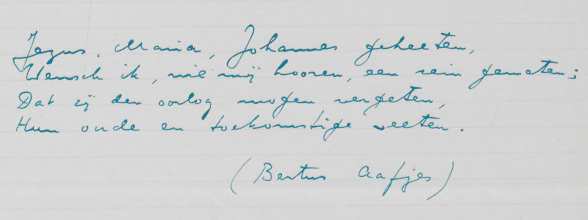 Jezus, Maria, Johannes geheeten,
Wensch ik, wie mij hooren, een rein geweten;
Dat zij den oorlog mogen vergeten,
Hun oude en toekomstige veeten.
(Bertus Aafjes)